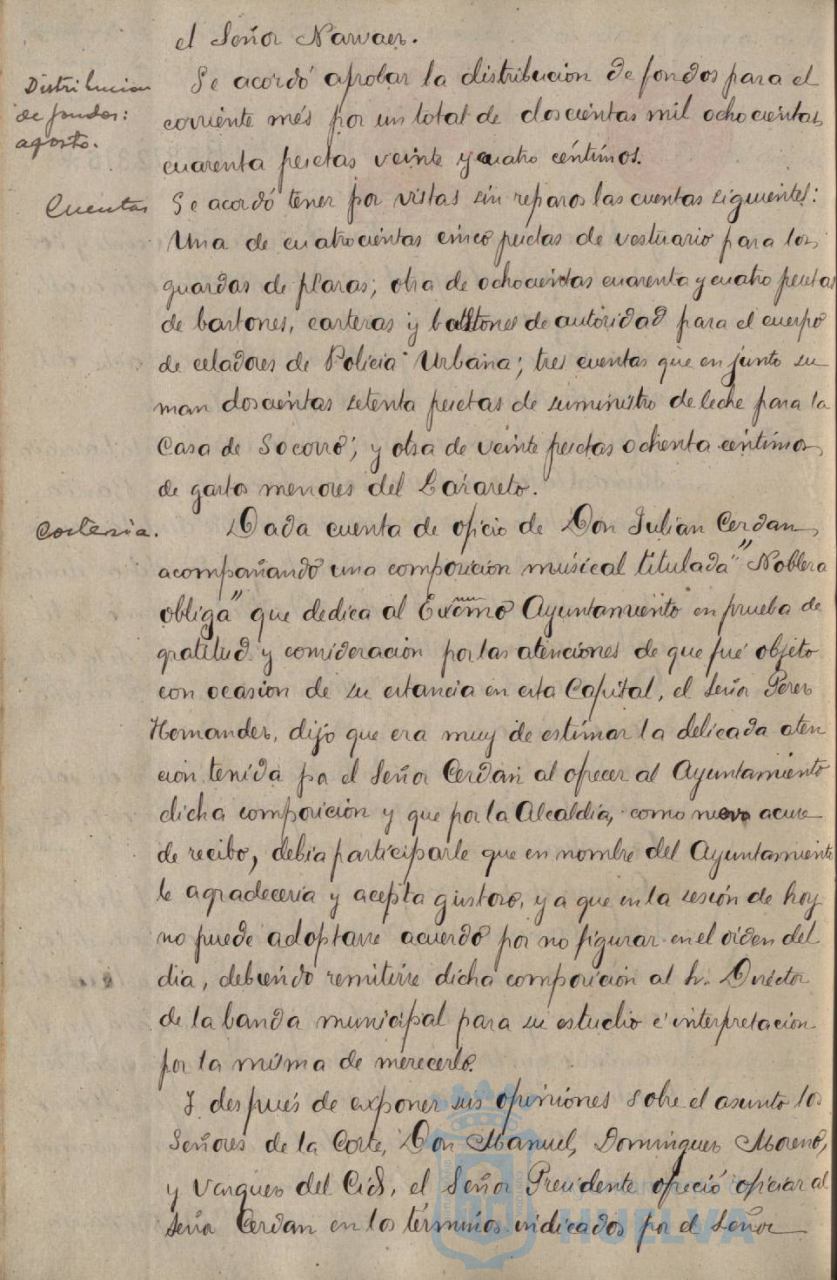 el Señor Narvaez.
Distribucion
de fondos:
agosto.
Se acordó aprobar la distribución de fondos para el
corriente més por un total de doscientas mil ochocientas
cuarenta pesetas veinte y cuatro céntimos.
Cuentas
Se acordó tener por vistas sin reparos las cuentas siguientes:
Una de cuatrocientas cinco pesetas de vestuario para los
guardas de plazas; otra de ochocientas cuarenta y cuatro pesetas
de bastones, carteras y bastones de autoridad para el cuerpo
de celadores de Policia Urbana; tres cuentas que en junto su
man doscientas setenta pesetas de suministro de leche para la
Casa de Socorro; y otra de veinte pesetas ochenta céntimos
de gastos menores del Lazareto.
Cortesia.
Dada cuenta de oficio de Don Julian Cerdan,
acompañando una composicion musical titulada "Nobleza
obliga" que dedica al Excmo Ayuntamiento en prueba de
gratitud y consideración por las atenciones de que fué objeto
con ocasion de su estancia en esta Capital, el Señor Perez
Hernandez, dijo que era muy de estimar la delicada aten
cion tenida por el Señor Cerdán al ofrecer al Ayuntamiento
dicha composición y que por la Alcaldía, como nuevo acuse
de recibo, debia participarle que en nombre del Ayuntamiento
le agradeceria y acepta gustoso, ya que en la sesión de hoy
no puede adoptarse acuerdo por no figurar en el orden del
dia, debiendo remitirse dicha composición al Sr. Director
de la banda municipal para su estudio é interpretación
por la misma de merecerlo.
Y después de exponer sus opiniones sobre el asunto los
Señores de la Corte, Don Manuel, Dominguez Moreno,
y Vazquez del Cid, el Señor Presidente ofreció oficiar al
Señor Cerdan en los términos indicados por el Señor
HUELVA